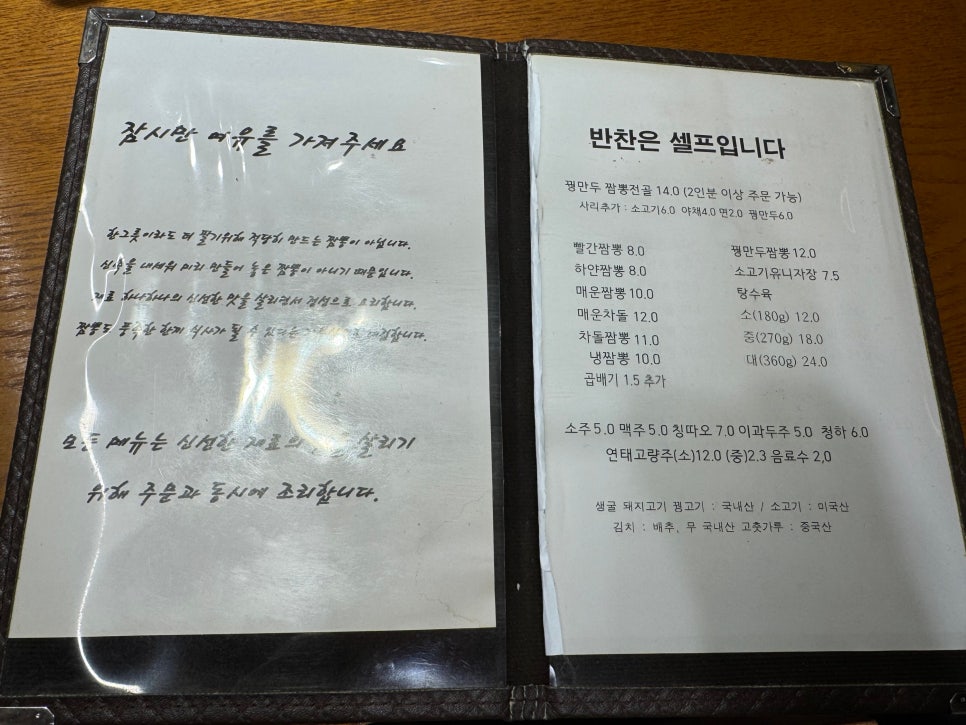 잠시만 여유를 가져주세요
한그릇이라도 더 팔기위해 적당히 만드는 짬뽕이 아닙니다.
신속을 내세워 미리 만들어 놓은 짬뽕이 아니기 때문입니다.
재료 하나하나의 신선한 맛을 살리면서 정성으로 요리합니다.
짬뽕도 풍족한 한끼 식사가 될 수 있다는 대접합니다.
모든 메뉴는 신선한 재료의 살리기
위해 주문과 동시에 조리합니다.
반찬은 셀프입니다
꿩만두 짬뽕전골 14.0 (2인분 이상 주문 가능)
사리추가 : 소고기6.0 야채4.0 면2.0 꿩만두6.0
빨간짬뽕 8.0
하얀짬뽕 8.0
매운짬뽕 10.0
매운차돌 12.0
차돌짬뽕 11.0
냉짬뽕 10.0
곱배기 1.5 추가
꿩만두짬뽕 12.0
소고기유니자장 7.5
탕수육
소(180g) 12.0
중(270g) 18.0
대(360g) 24.0
소주 5.0 맥주 5.0 칭따오 7.0 이과두주 5.0 청하 6.0
연태고량주(소)12.0 (중)2.3 음료수 2,0
생굴 돼지고기 꿩고기 : 국내산 / 소고기 : 미국산
김치 : 배추, 무 국내산 고춧가루 : 중국산